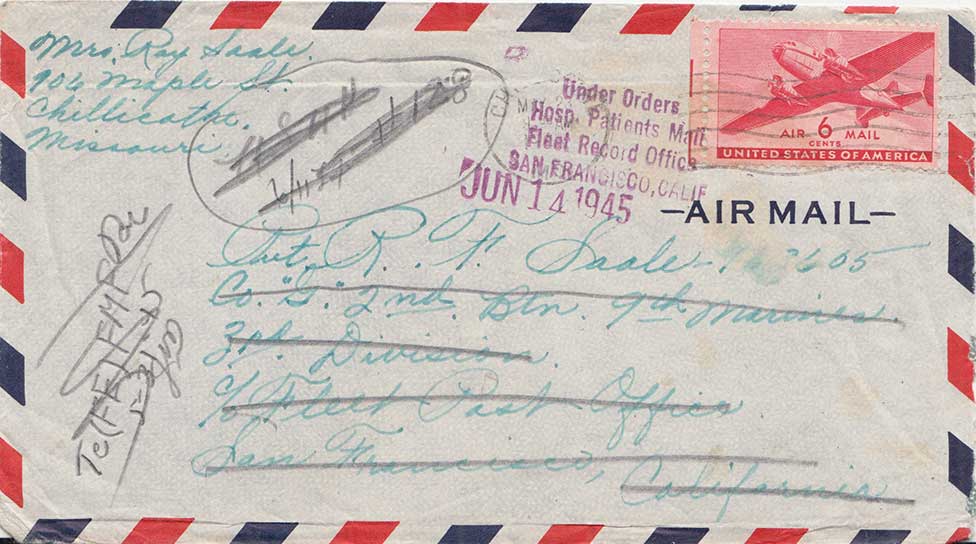 Mrs. Ray Saale.
906 Maple St.
Chillicothe,
Missouri.
Under Orders
Hosp. Patients Mail
Fleet Record Office
SAN FRANCISCO, CALIF
JUN 14 1945
AIR 6 MAIL
CENTS
UNITED STATES OF AMERICA
-AIR MAIL-
Pvt. R. F. Saale
2nd. Btn. 9th Marines.
3rd. Division
% Fleet Post Office
San Francisco,
California